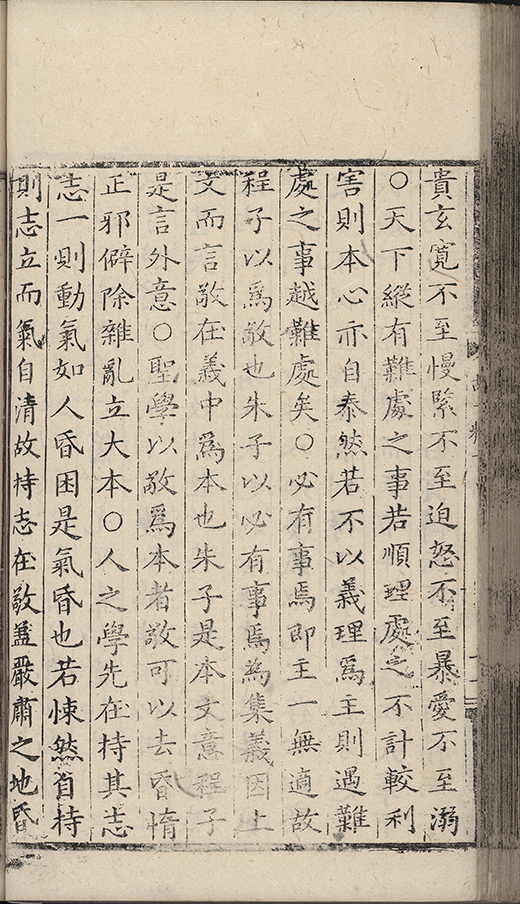 貴玄寬不至慢緊不至迫怒不至暴愛不至溺
○天下縱有難處之事若順理處之不計較利
害則本心亦自泰然若不以義理爲主則遇難
處之事越難處矣○必有事焉即主一無適故
程子以爲敬也朱子以必有事焉爲集義因上
文而言敬在義中爲本也朱子是本文意程子
是言外意○聖學以敬爲本者敬可以去昏惰
正邪僻除雜亂立大本○人之學先在持其志
志一則動氣如人昏困是氣昏也若悚然自持
則志立而氣自清故持志在敬盖嚴肅之地昏